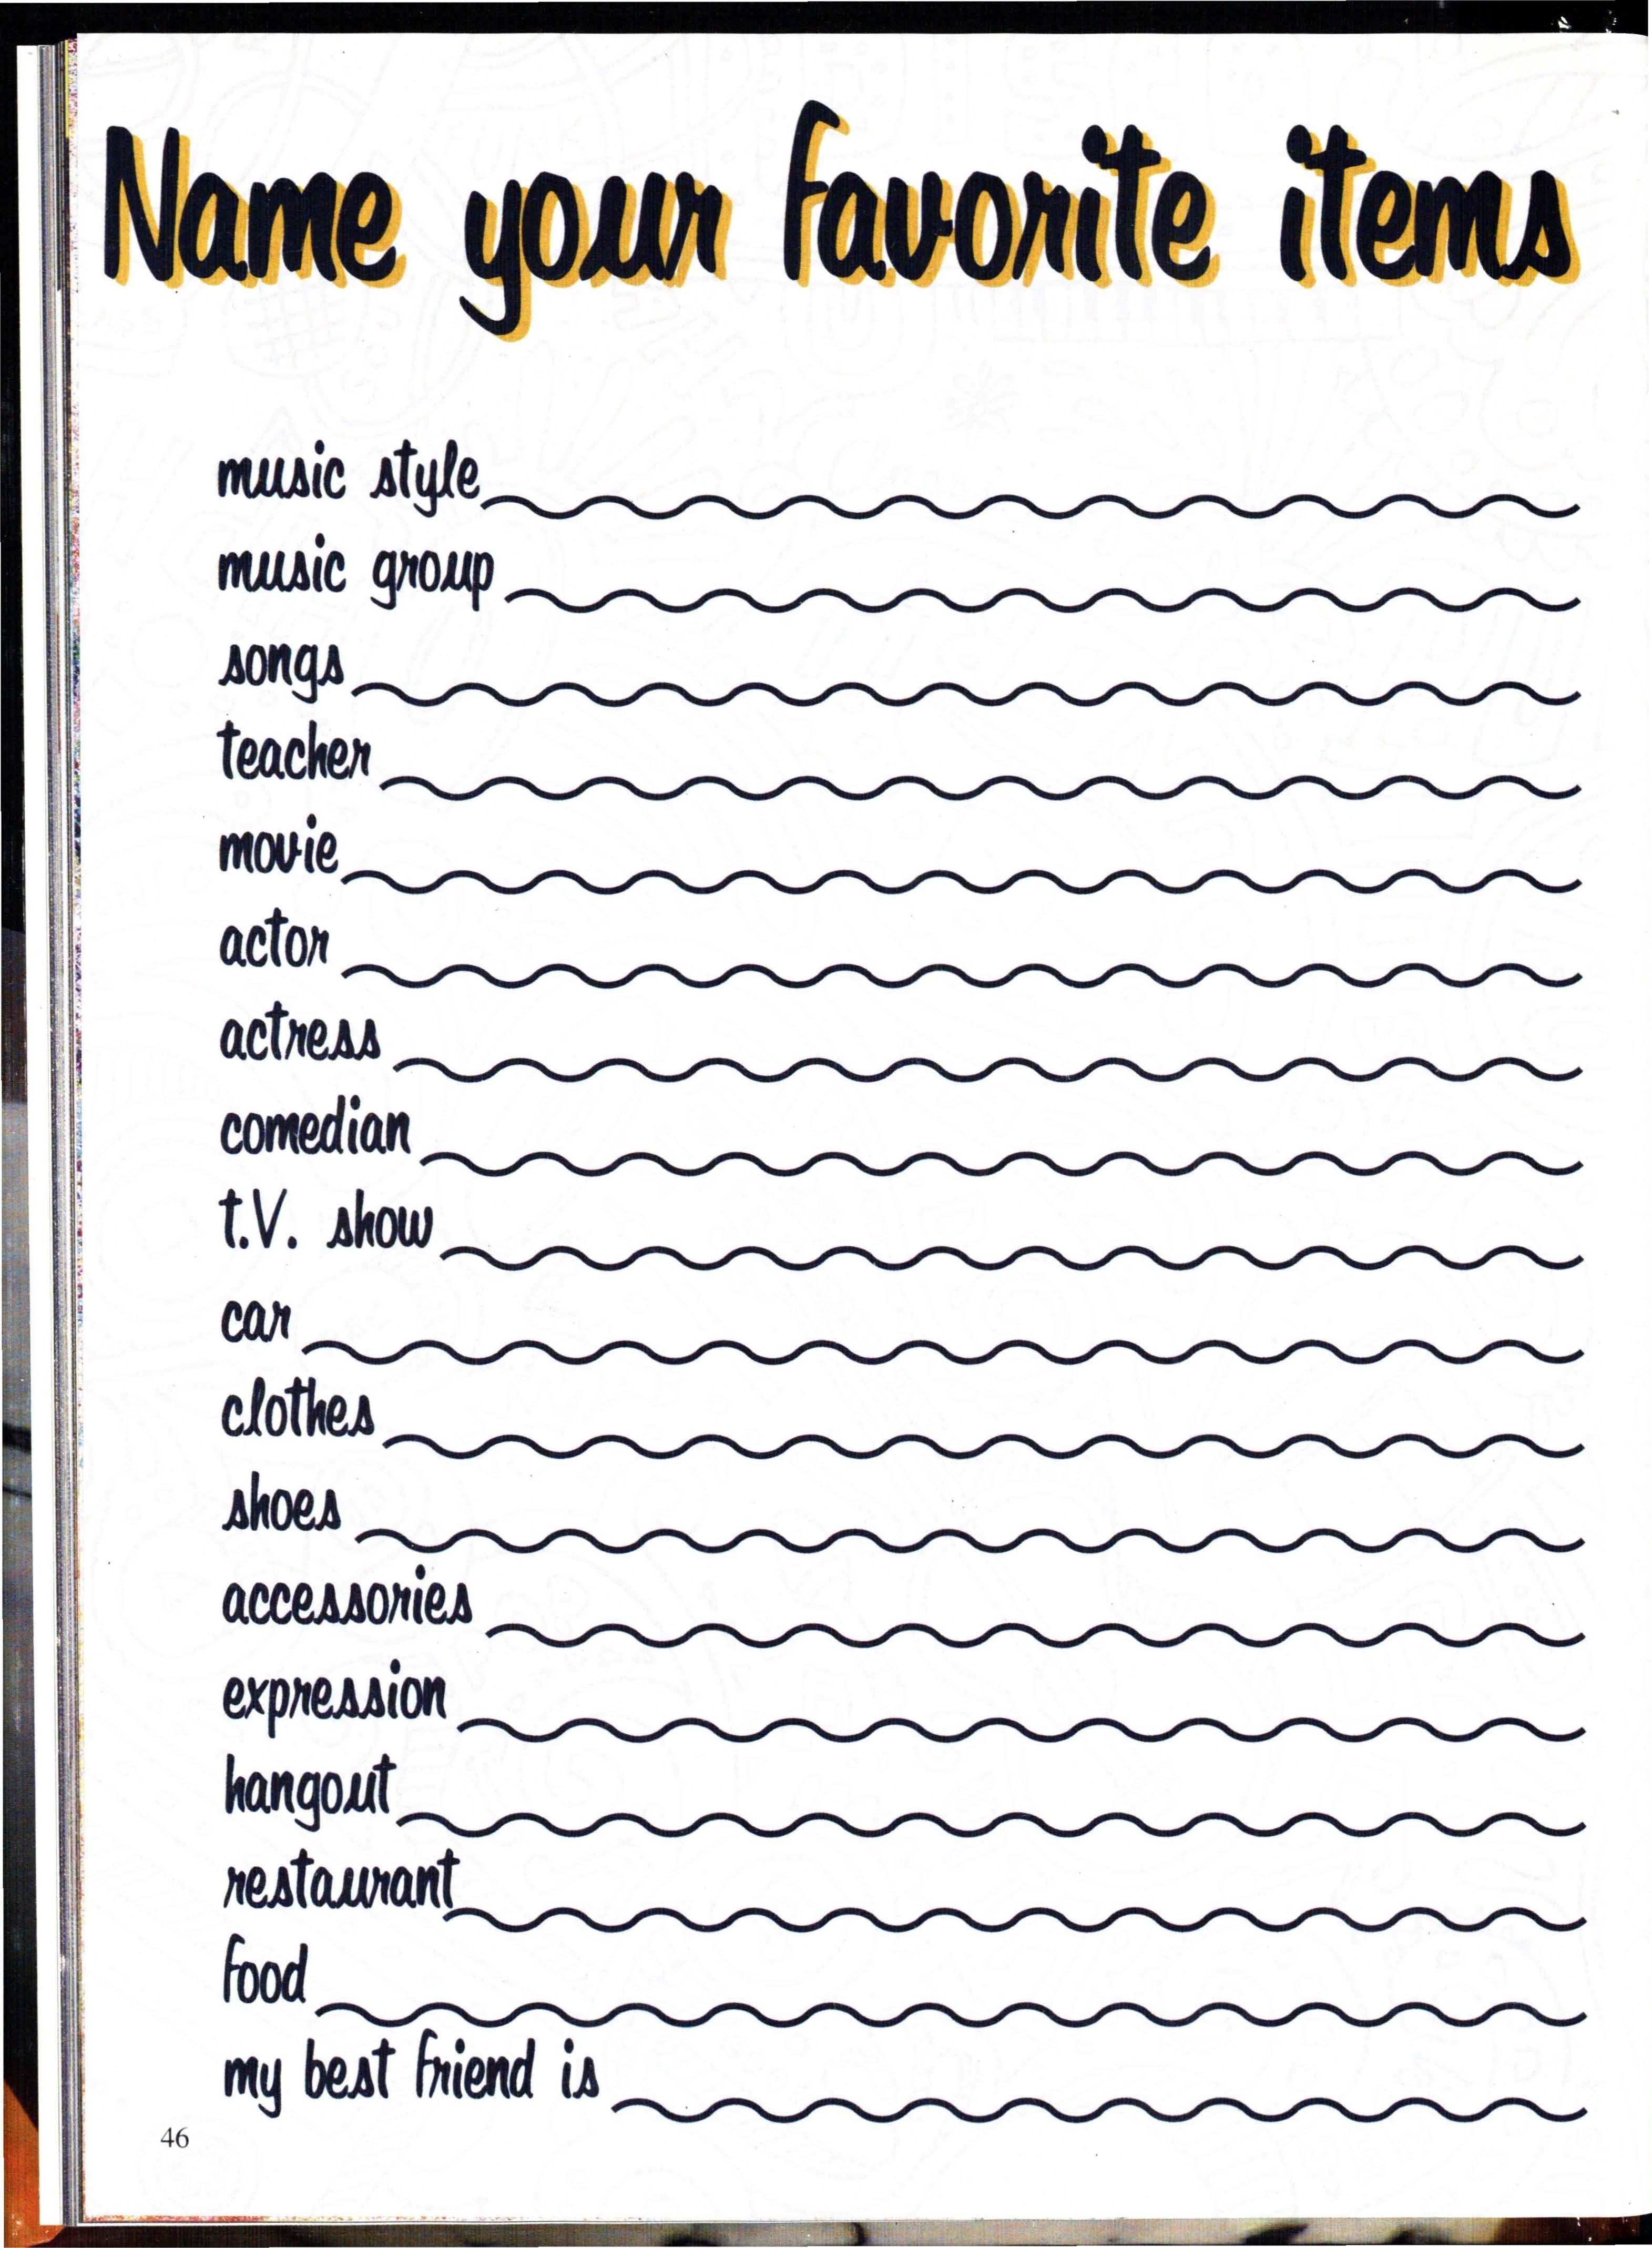 Name your favorite items
music style
music group
songs
teacher
movie
actor
actress
comedian
t.V. show
car
clothes
shoes
accessories
expression
hangout
restaurant
food
my best friend is
46